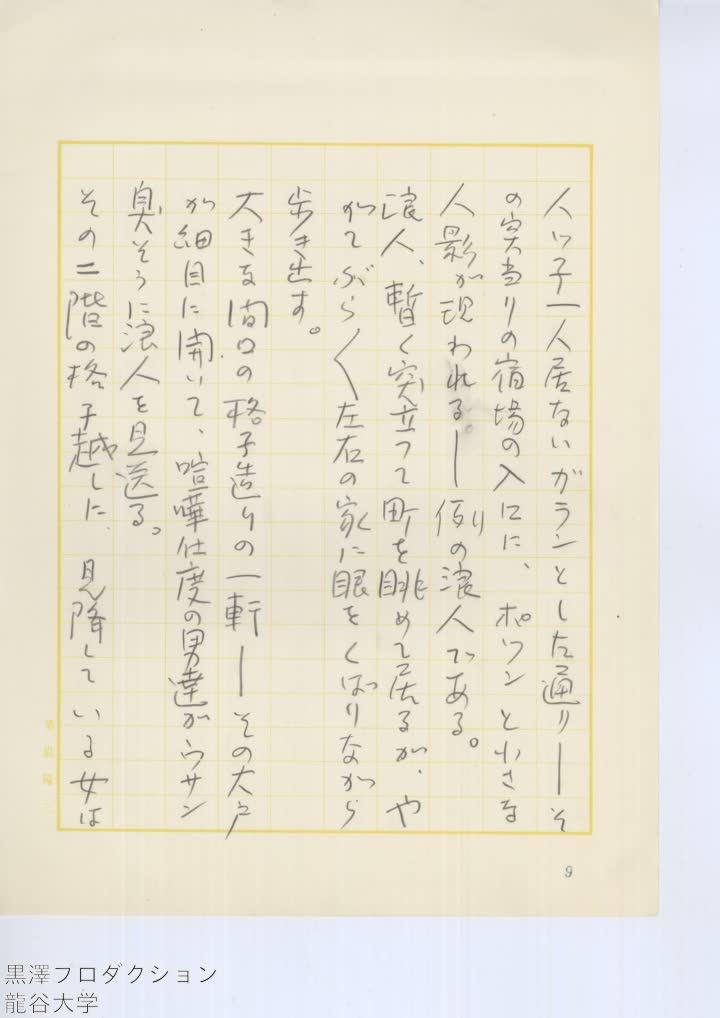 人ッ子一人居ないガランとした通り―そ
の突当りの宿場の入口に、ポツンと小さな
人影が現われる。―例の浪人である。
浪人、暫く突立って町を眺めて居るが、や
がてぶら〱左右の家に眼をくばりながら
歩き出す。
大きな間口の格子造りの一軒―その大戸
が細目に開いて、喧嘩仕度の男達がウサン
臭そうに浪人を見送る。
その二階の格子越しに、見降している女は
9
黒澤プロダクション
龍谷大学